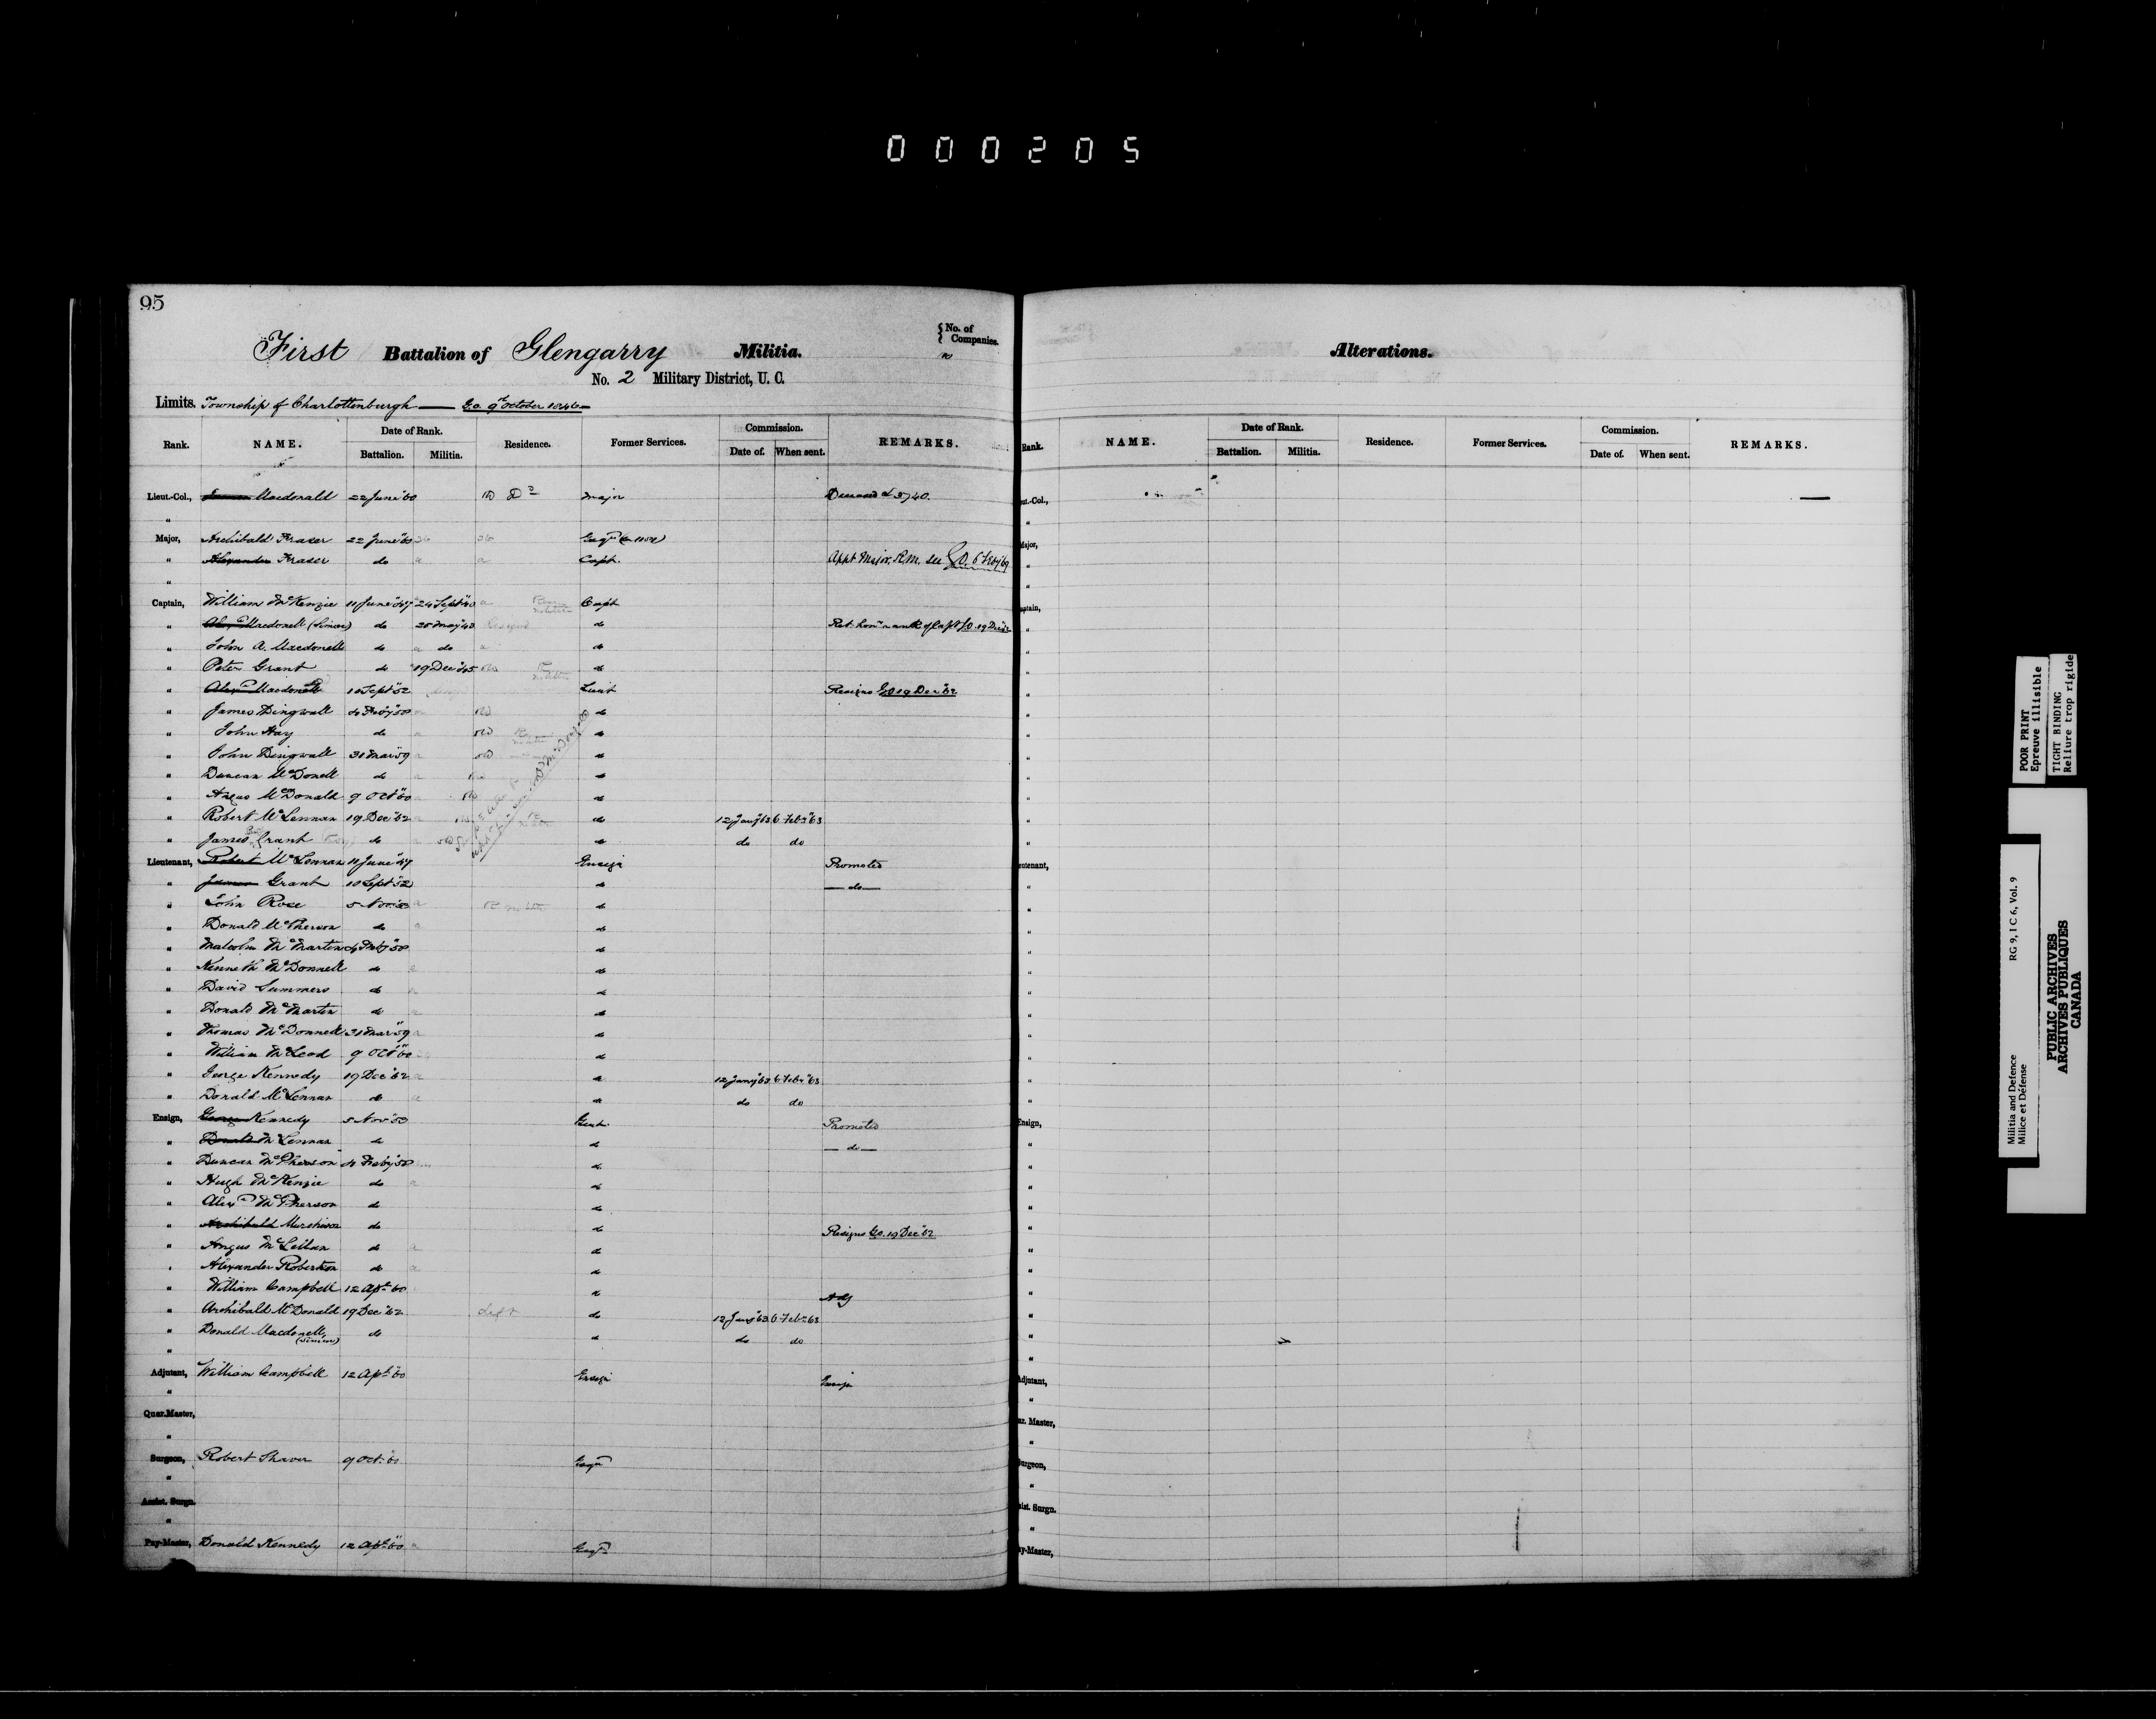 000205
95
First Battalion of Glengarry Militia.
{ No. of Companies.
10
No. 2 Military District, U. C.
Limits. Township of Charlottenburgh — G.O. 9th October 1846 —
Rank. NAME. Date of Rank. Battalion. Militia. Residence. Former Services. Commission. Date of. When sent. REMARKS.
Lieut.-Col., Macdonald 22 June "60 Major Deceased
"
Major, Archibald Fraser 22 June "60 Esqre
" Alexander Fraser do Capt. Appt Major, R.M. see G.O. 6 Feby 69
"
Captain, William McKenzie 11 June "47 24 Sept "40 Capt
" Alexr Macdonell do 25 May "43 do Ret. honry rank of Capt G.O. 19 Dec "62
" John A. Macdonell do do do
" Peter Grant do 19 Dec "45 do
" Alexr Macdonell 10 Sept "52 Lieut Resigns G.O. 19 Dec "62
" James Dingwall 4 Feby "58 do
" John Hay do do
" John Dingwall 31 Mar "59 do
" Duncan McDonell do do
" Angus McDonald 9 Oct "60 do
" Robert McLennan 19 Dec "62 do 12 Jany "63 6 Feby "63
" James Grant do do do do
Lieutenant, Robert McLennan 11 June "47 Ensign Promoted
" James Grant 10 Sept "52 do — do —
" John Rose 5 Nov do
" Donald McPherson do do
" Malcolm McMartin 4 Feby "58 do
" Kenneth McDonnell do do
" David Summers do do
" Donald McMartin do do
" Thomas McDonnell 31 Mar "59 do
" William McLeod 9 Oct "60 do
" George Kennedy 19 Dec "62 do 12 Jany "63 6 Feby "63
" Donald McLennan do do do do
Ensign, George Kennedy 5 Nov Gent. Promoted
" Donald McLennan do do — do —
" Duncan McPherson 4 Feby "58 do
" Hugh McKenzie do do
" Alexr McPherson do do
" Archibald Murchison do do Resigns G.O. 19 Dec "62
" Angus McLellan do do
" Alexander Robertson do do
" William Campbell 12 Apl "60 do Adj
" Archibald McDonald 19 Dec "62 Left do 12 Jany "63 6 Feby "63
" Donald Macdonell do do do do
"
Adjutant, William Campbell 12 Apl "60 Ensign Ensign
"
Quar.Master,
"
Surgeon, Robert Shaver 9 Oct. "60 Esqre
"
Assist. Surgn.
"
Pay-Master, Donald Kennedy 12 Apl "60 Esqre
Alterations.
Rank. NAME. Date of Rank. Battalion. Militia. Residence. Former Services. Commission. Date of. When sent. REMARKS.
ut.-Col.,
"
Major,
"
"
aptain,
eutenant,
Ensign,
Adjutant,
"
ar. Master,
"
urgeon,
"
sist. Surgn.
"
ay-Master,
POOR PRINT
Epreuve illisible
TIGHT BINDING
Reliure trop rigide
Militia and Defence
Milice et Défense
RG 9, I C 6, Vol. 9
PUBLIC ARCHIVES
ARCHIVES PUBLIQUES
CANADA